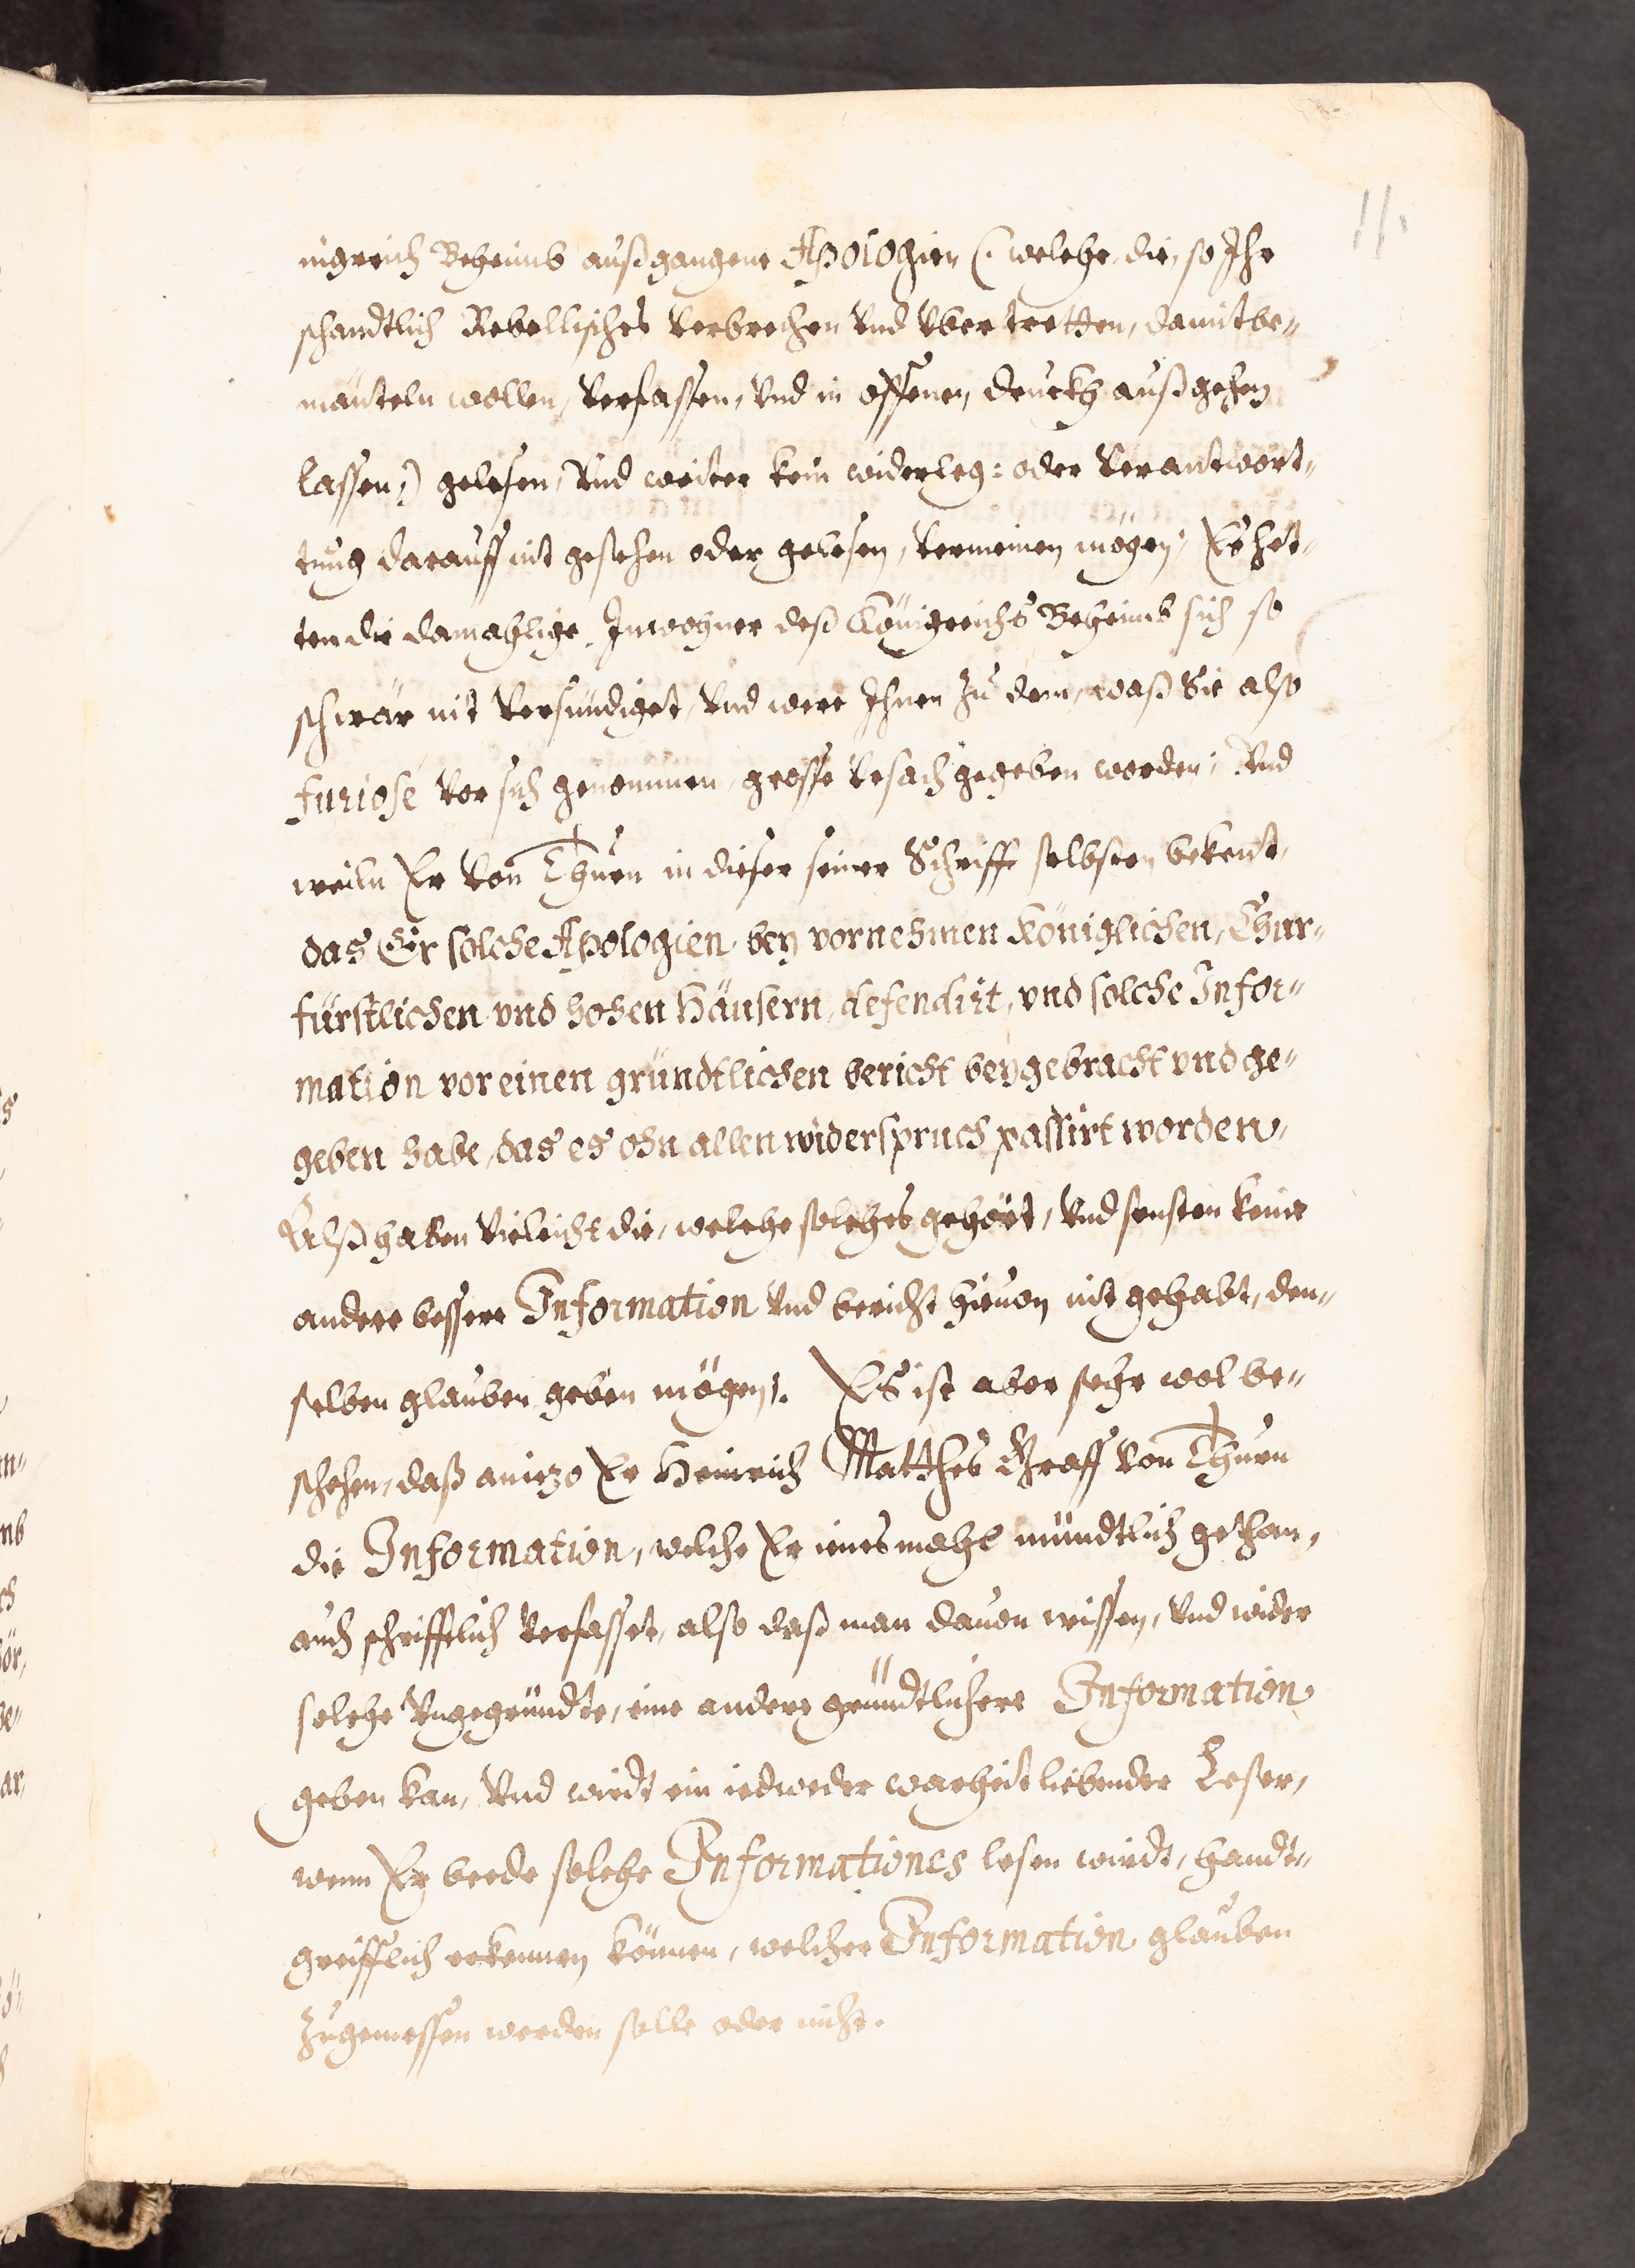 11.
nigreich Beheimb außgangene Apologien (: welche die, so Ihr
schandtlich Rebellisches Verbrechen Vnd Vbertretten, damit be„
mänteln wollen, Verfassen, Vnd in offenen druckh außgehen
lassen:) gelesen, Vnd weiter kein widerleg: oder Verantwort„
tung darauff nit gesehen oder gelesen, Vermeinen mögen, Es het„
ten die damahlige Inwohner deß Königreichs Beheimb sich so
schwär nit Versündiget, Vnd were Ihnen zu dem, waß Sie also
furiosé Vor sich genommen, grosse Vrsach gegeben worden; Vnd
weiln Er Von Thurn in dieser seiner Schrifft selbsten bekent,
das Er solche Apologien bey vornehmen Königlichen, Chur„
fürstlichen vnd hohen Häusern, defendirt, vnd solche Infor„
mation vor einen gründtlichen bericht beygebracht vnd ge„
geben habe, das es ohn allen widerspruch passirt worden,
Alß haben Vieleicht die, welche solches gehört, Vnd sonsten keine
andere bessere Information Vnd bericht hieuon nit gehabt, den„
selben glauben geben mögen. Es ist aber sehr wol be„
schehen, daß aniezo Er Heinrich Matthes Graff Von Thurn
die Information, welche Er ienes mahl mündtlich gethan,
auch schrifftlich Verfasset, also daß man dauon wissen, Vnd wider
solche Vngegründte, eine andere gründtlichere Information
geben kan, Vnd wirdt ein iedweder warheit liebender Leser,
wenn Er beede solche Informationes lesen wirdt, handt„
greifflich erkennen können, welcher Information glauben
zugemessen werden solle oder nicht.